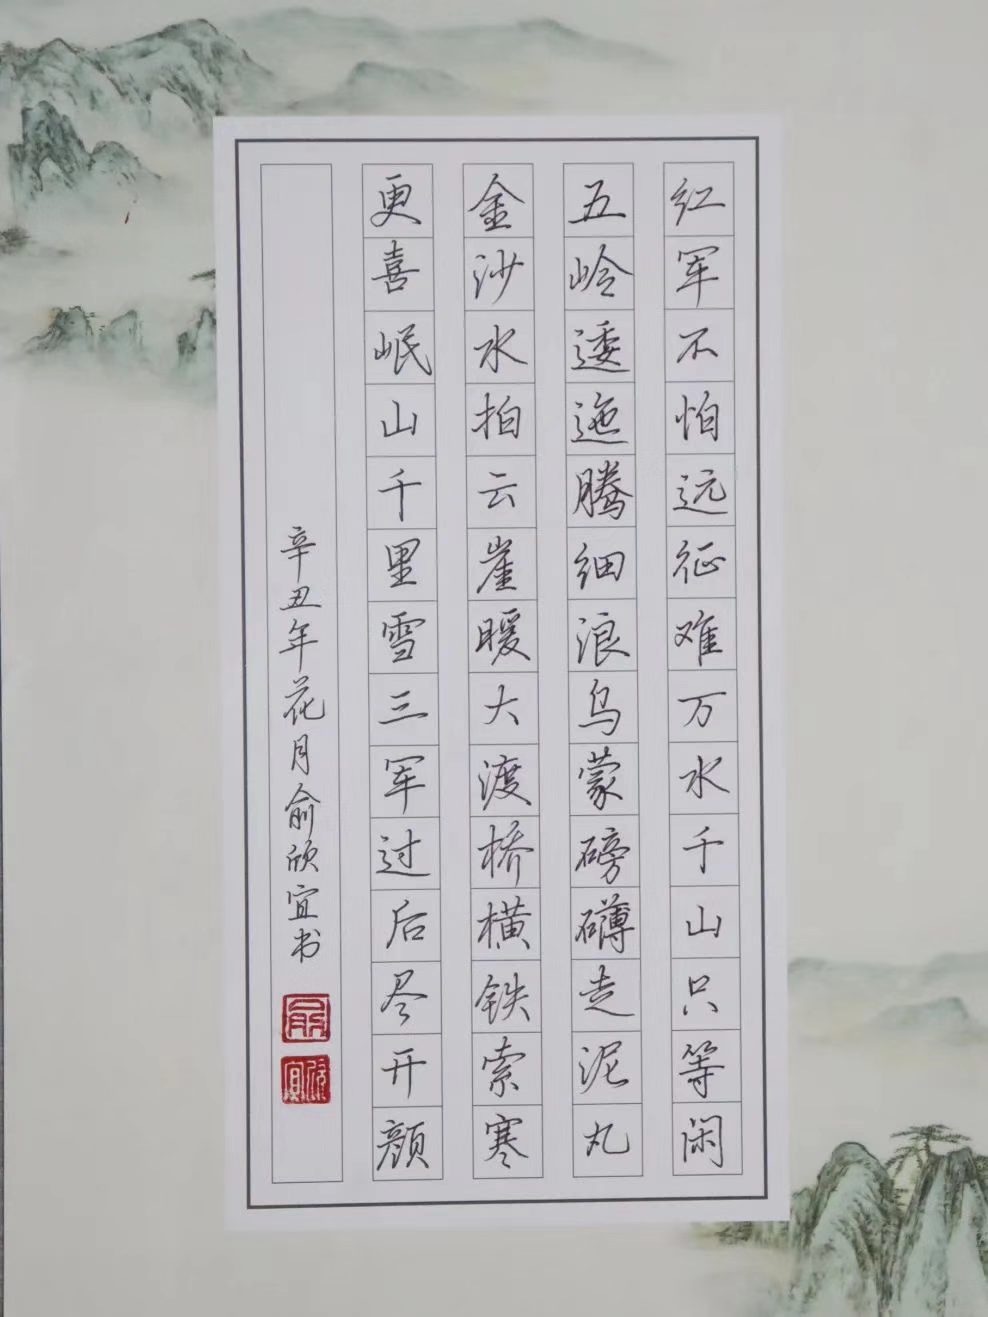 红军不怕远征难万水千山只等闲
五岭逶迤腾细浪乌蒙磅礴走泥丸
金沙水拍云崖暖大渡桥横铁索寒
更喜岷山千里雪三军过后尽开颜
辛丑年花月俞欣宜书
俞
欣宜